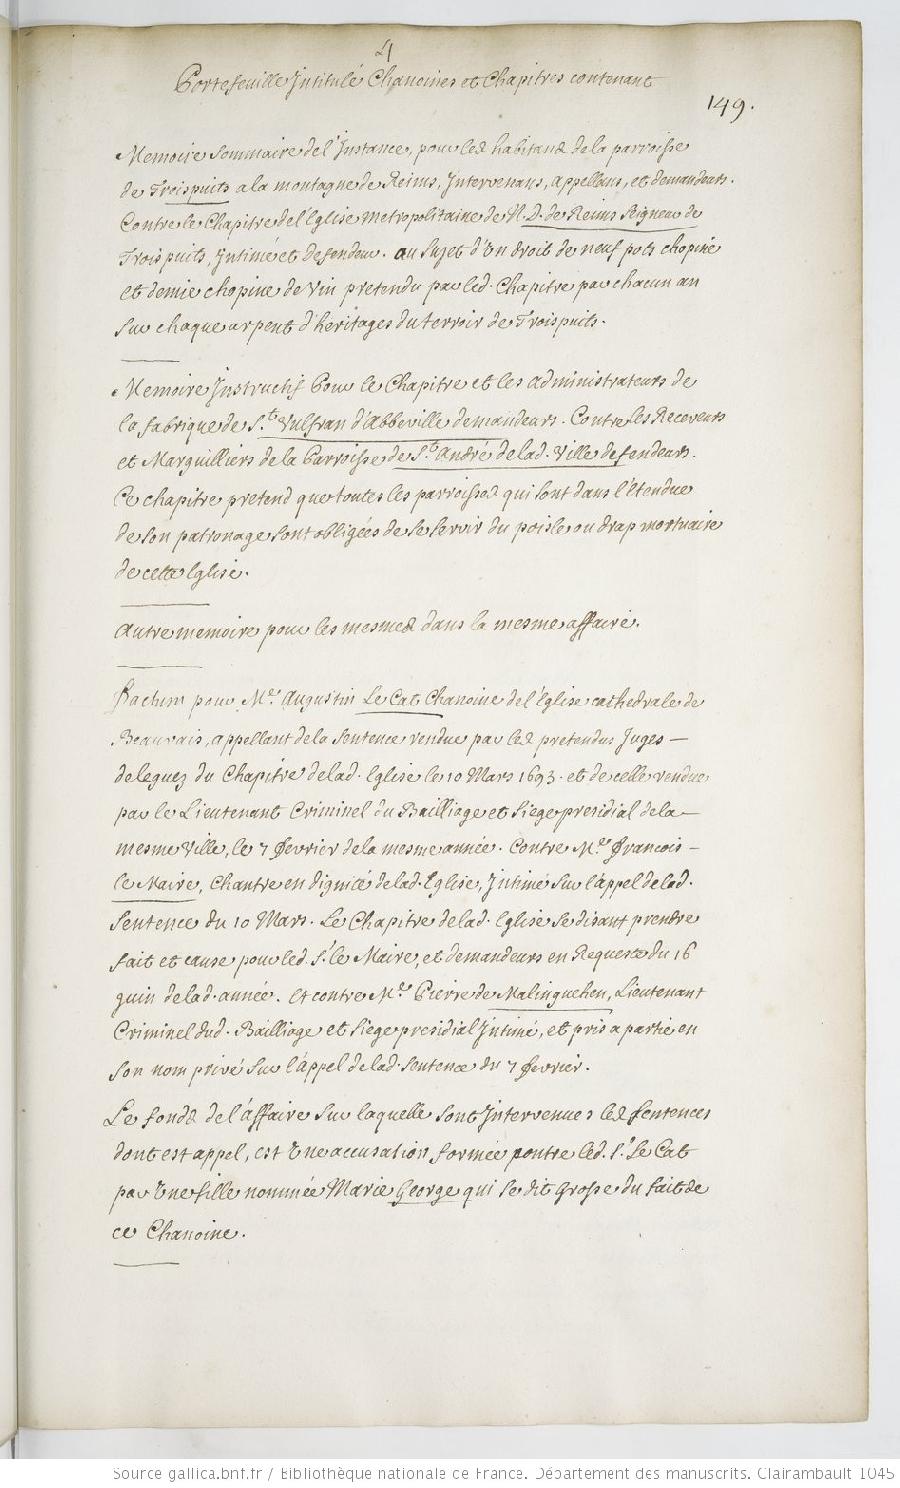 4
Portefeuille Intitulé Chanoines et Chapitres contenant
149.
Memoire sommaire de l'Instance, pour les habitans de la parroisse
de Troispuits a la montagne de Reims, Intervenans, appellans, et demandeurs.
Contre le Chapitre de l'Eglise metropolitaine de N. D. de Reims Seigneur de
Troispuits, Intimé et defendeur. au sujet d'Un droit de neuf pots chopine
et demie chopine de Vin pretendu par led. Chapitre par chacun an
sur chaque arpent d'héritages du terroir de Troispuits.
Memoire Instructif Pour le Chapitre et les administrateurs de
la fabrique de St. Vulfran d'Abbeville demandeurs. Contre les Receveurs
et Marguilliers de la Parroisse de St. André de lad. Ville defendeurs.
Ce chapitre pretend que toutes les parroisses qui sont dans l'étendue
de son patronage sont obligées de se servir du poisle ou drap mortuaire
de cette Eglise.
Autre memoire pour les mesmes dans la mesme affaire.
Factum pour Me. Augustin Le Cat Chanoine de l'Eglise cathedrale de
Beauvais, appellant de la Sentence rendue par les pretendus Juges
deleguez du Chapitre de lad. Eglise le 10 Mars 1693. et de celle rendue
par le Lieutenant Criminel du Bailliage et Siege presidial de la
mesme Ville, le 7 fevrier de la mesme année. Contre Me. François
le Maire, Chantre en dignité de lad. Eglise, Intimé sur l'appel de lad.
Sentence du 10 Mars. Le Chapitre de lad. Eglise se disant prendre
fait et cause pour led. Sr. le Maire, et demandeurs en Requeste du 16
Juin de lad. année. Et contre Me. Pierre de Malinguehen, Lieutenant
Criminel dud. Bailliage et Siege presidial Intimé, et pris a partie en
son nom privé sur l'appel de lad. sentence du 7 fevrier.
Le fonds de l'affaire sur laquelle sont Intervenues les sentences
dont est appel, est Une accusation formée contre led. Sr. Le Cat
par Une fille nommée Marie George qui se dit grosse du fait de
ce Chanoine.
Source gallica.bnf.fr / Bibliothèque nationale de France. Département des manuscrits. Clairambault 1045